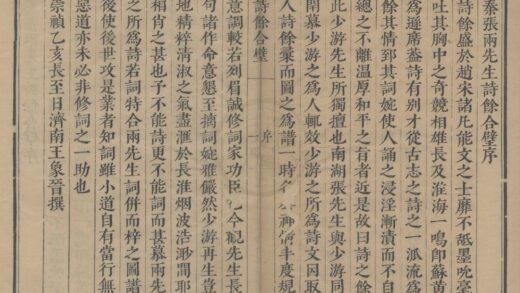 秦張兩先生詩餘合璧序
詩餘盛於趙宋諸凡能文之士靡不舐墨吮毫
吐其胸中之奇競相雄長及淮海一鳴卽蘇黃
為遜席蓋詩有別才從古志之詩之一派流為
其情到其詞婉使人誦之浸淫漸漬而不自
總之不離溫厚和平之旨者近是故曰詩之餘
此少游先生所獨擅也南湖張先生與少游同
南慕少游之為人輒效少游之所為詩文因取
人詩餘彙而圖之為譜一時名公神情丰度規
詩餘合璧 序 一
意調較若列眉誠修詞家功臣也今觀先生長
句諸作命意懇至摛詞婉雅儼然少游再生豈
地精粹清淑之氣盡滙於長淮烟波浩渺間耶
相肖之甚也予不能詩更不能詞而甚慕兩先
之所為詩若詞特合兩先生詞併而梓之圖譜
後使後世攻是業者知詞雖小道自有當行無
惡道亦未必非修詞之一助也
崇禎乙亥長至日濟南王象晉撰